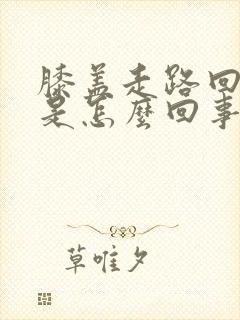 膝盖走路回
是怎麼回事
草唯夕